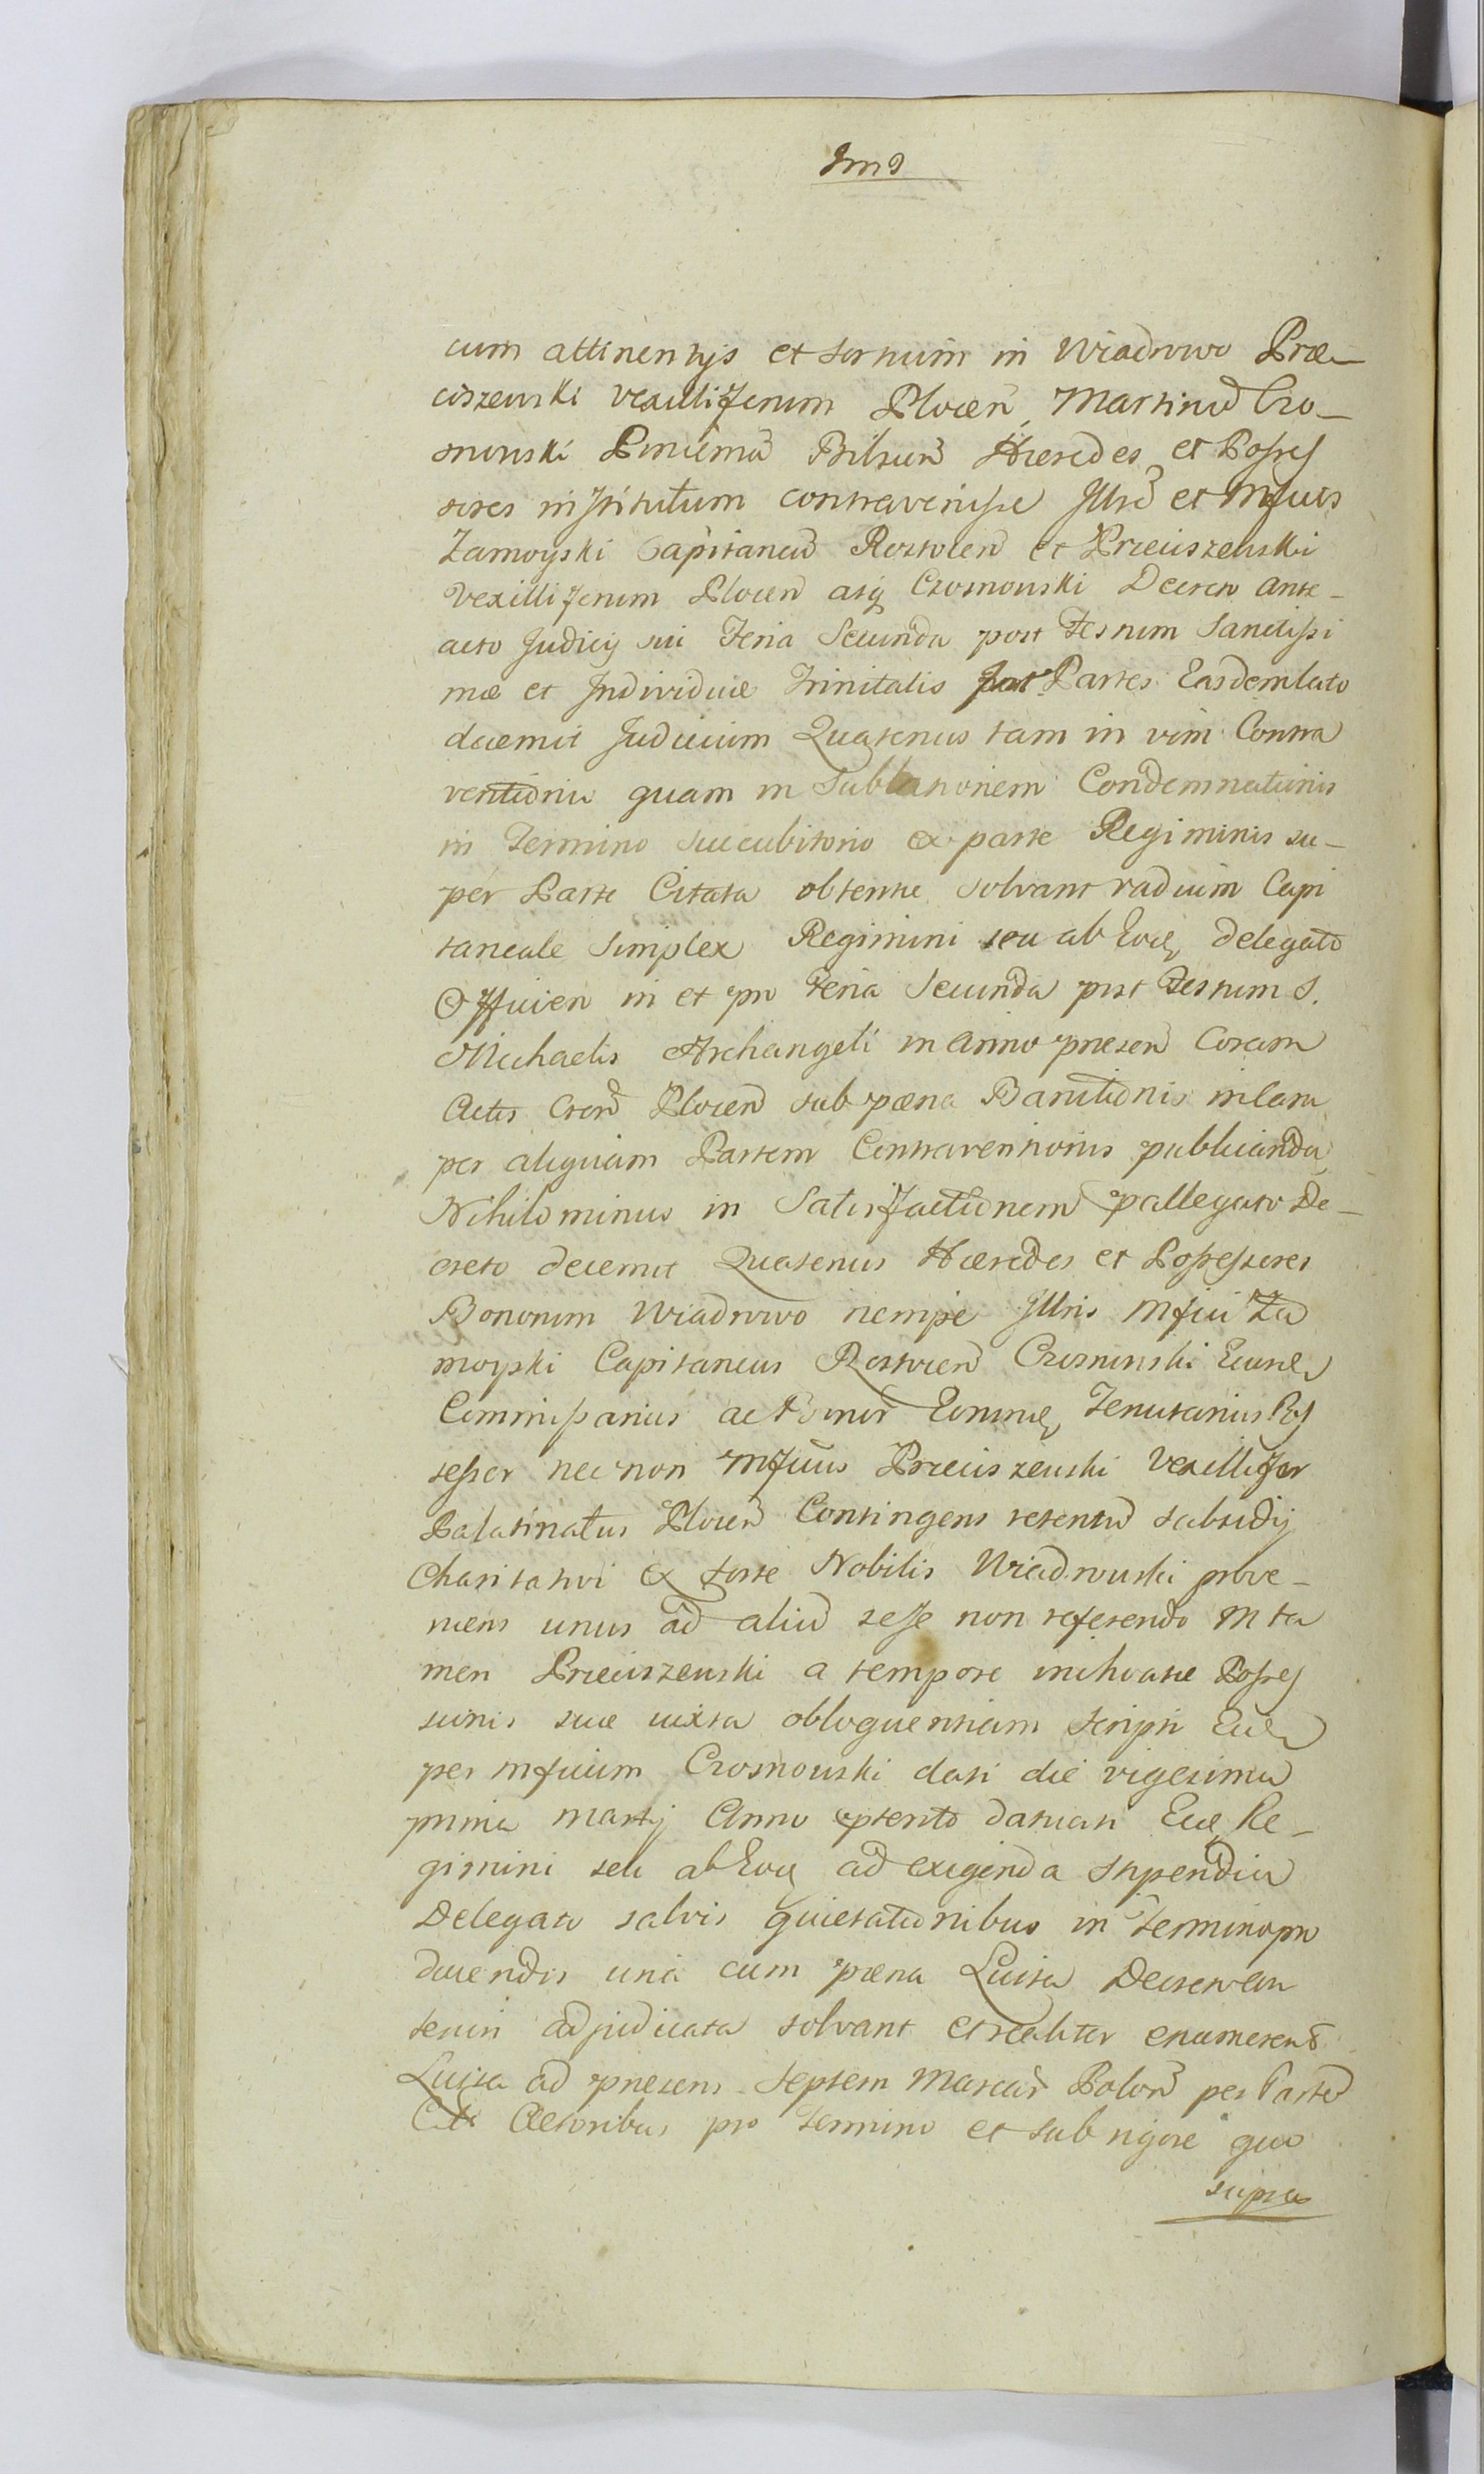 cum attinentijs et sortium in Wiadrowo Prze-
ciszewski Vexilliferum Plocen, Martinū Czo-
snowski Pincernā Bilscen̄ Hæredes et Posses
sores institutum contravenisse Illrē et Mficos
Zamoyski Capitaneū Rostocen̄ et Przeciszewski
Vexilliferum Plocen̄ atq; Czosnowski Decreto ante-
acto Judicij sui Feria Secunda post Festum Sanctissi
mæ et Individuæ Trinitatis Partes Easdem lato
decernit Judicium Quatenus tam in vim Contra
ventionis quam in Sublationem Condemnationis
in Termino succubitorio ex parte Regiminis su-
per Parte Citata obtentæ solvant vadium Capi
taneale Simplex Regimini seu ab Eod, delegato
Officien in et pro Feria Secunda post Festum S.
Michaelis Archangeli in Anno præsen̄ Coram
Actis Cren̄ Plocen̄ sub pæna Bannitionis
per aliquam Partem Contraventionis publicanda,
Nihilominus in Satisfactionem pallegato De-
creto decernit Quatenus Hæredes et Possessores
Bonorum Wiadrowo nempe Illris Mficus Za
moyski Capitaneus Rostocen̄ Czosnowski
Commissarius ac Bonor̄ Tenutarius Pos
sessor nec non Mficus Przeciszewski Vexillifer
Palatinatus Plocen̄ Contingens retentū subsidij
Charitativi ex sorte Nobilis Wiadrowski prove-
niens unus ad aliū sese non referendo M ta
men Przeciszewski a tempore inchoatæ Posses
sionis suæ iuxta obloquentiam Scripti
per Mficum Czosnowski dati die vigesima
prima Martij Anno præsenti datuati Re-
gimini seu ab Eod ad exigenda stipendia
Delegato salvis quietationibus in Termino pro
ducendis una cum pæna Luita
adjudicata solvant et realiter enumerent
Luita ad præsens Septem Marcar̄ Polon̄ per Partē
Cit Actoribus pro Termino et sub rigore quo
supra